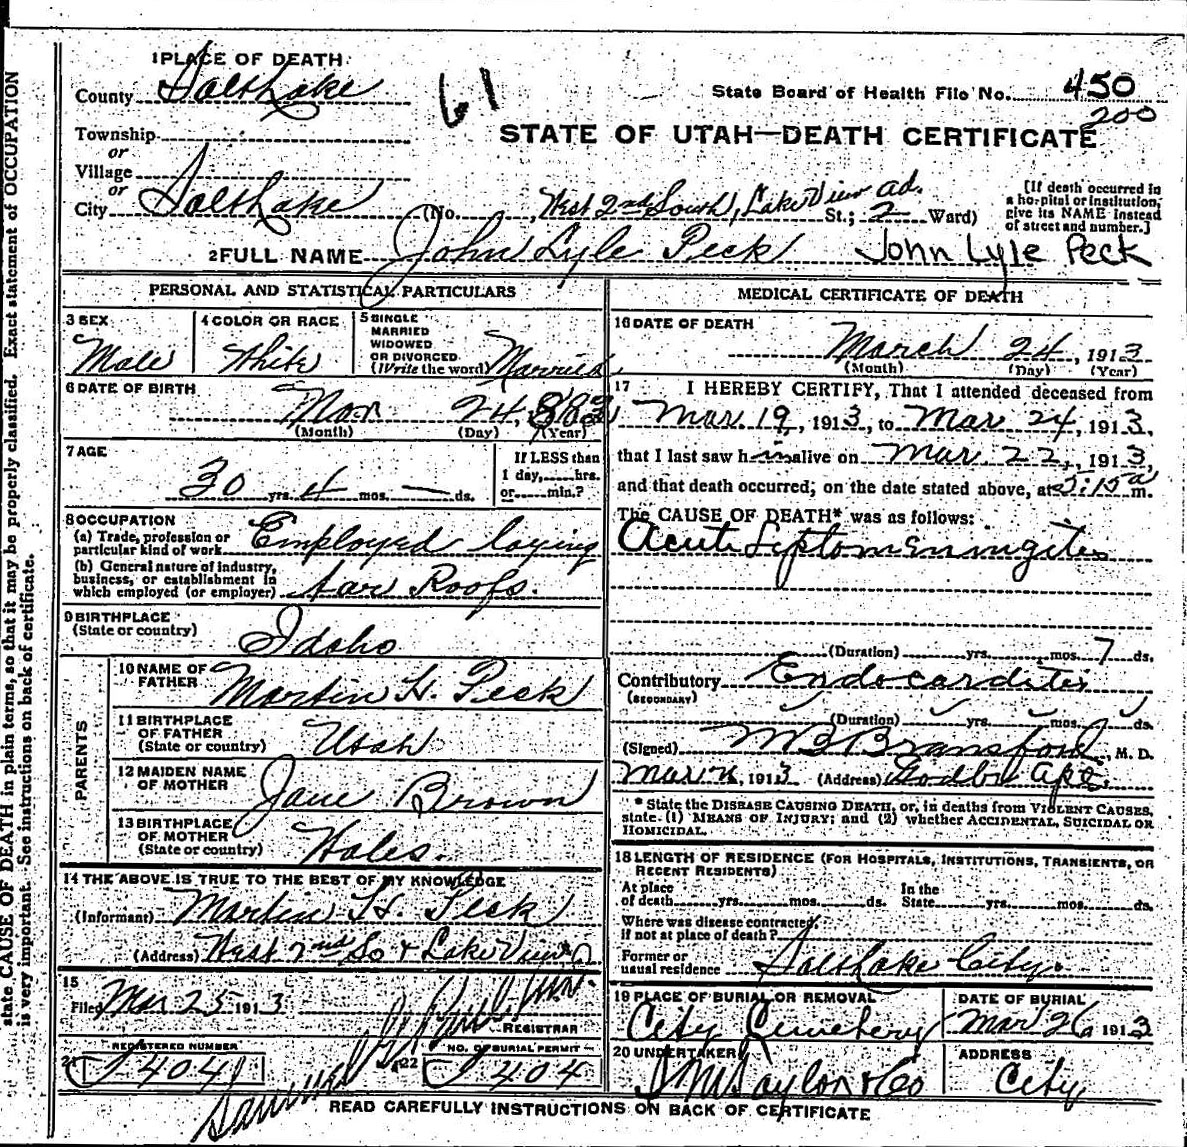 state CAUSE OF DEATH in plain terms, so that it may be properly classified. Exact statement of OCCUPATION
is very important. See instructions on back of certificate.
1 PLACE OF DEATH
County Salt Lake
61
State Board of Health File No. 450
200
STATE OF UTAH—DEATH CERTIFICATE
Township
or
Village
or
City Salt Lake (No. West 2nd South, Lake View ad. St.; 2 Ward)
[If death occurred in
a hospital or institution,
give its NAME instead
of street and number.]
2 FULL NAME John Lyle Peck John Lyle Peck
PERSONAL AND STATISTICAL PARTICULARS
3 SEX
Male
4 COLOR OR RACE
White
5 SINGLE
MARRIED
WIDOWED
OR DIVORCED
(Write the word) Married
6 DATE OF BIRTH
24,
(Month) (Day) (Year)
7 AGE
30 yrs. 4 mos. — ds.
If LESS than
1 day, hrs.
or min.?
8 OCCUPATION
(a) Trade, profession or
particular kind of work Employed laying
(b) General nature of industry,
business, or establishment in
which employed (or employer) tar Roofs.
9 BIRTHPLACE
(State or country) Idaho
PARENTS
10 NAME OF
FATHER Martin H. Peck
11 BIRTHPLACE
OF FATHER
(State or country) Utah
12 MAIDEN NAME
OF MOTHER Jane Brown
13 BIRTHPLACE
OF MOTHER
(State or country) Wales.
14 THE ABOVE IS TRUE TO THE BEST OF MY KNOWLEDGE
(Informant) Martin H. Peck
(Address) West 2nd So & Lake View
15
Filed Mar 25 1913
REGISTRAR
REGISTERED NUMBER
21 J 404
22 NO. OF BURIAL PERMIT
J 404
MEDICAL CERTIFICATE OF DEATH
16 DATE OF DEATH
March 24, 1913
(Month) (Day) (Year)
17 I HEREBY CERTIFY, That I attended deceased from
Mar 19, 1913, to Mar 24, 1913,
that I last saw him alive on Mar. 22, 1913,
and that death occurred; on the date stated above, at 5:15 a m.
The CAUSE OF DEATH* was as follows:
Acute Leptomeningitis
(Duration) yrs. mos. 7 ds.
Contributory Endocarditis
(SECONDARY)
(Duration) yrs. mos. ds.
(Signed) M B Bransford, M. D.
Mar 1913 (Address) Godbe Apts.
* State the DISEASE CAUSING DEATH, or, in deaths from VIOLENT CAUSES,
state (1) MEANS OF INJURY; and (2) whether ACCIDENTAL, SUICIDAL OR
HOMICIDAL.
18 LENGTH OF RESIDENCE (FOR HOSPITALS, INSTITUTIONS, TRANSIENTS, OR
RECENT RESIDENTS)
At place
of death yrs. mos. ds. In the
State yrs. mos. ds.
Where was disease contracted,
if not at place of death?
Former or
usual residence Salt Lake City.
19 PLACE OF BURIAL OR REMOVAL
City Cemetery
DATE OF BURIAL
Mar 26 1913
20 UNDERTAKER
Taylor & Co
ADDRESS
City
READ CAREFULLY INSTRUCTIONS ON BACK OF CERTIFICATE